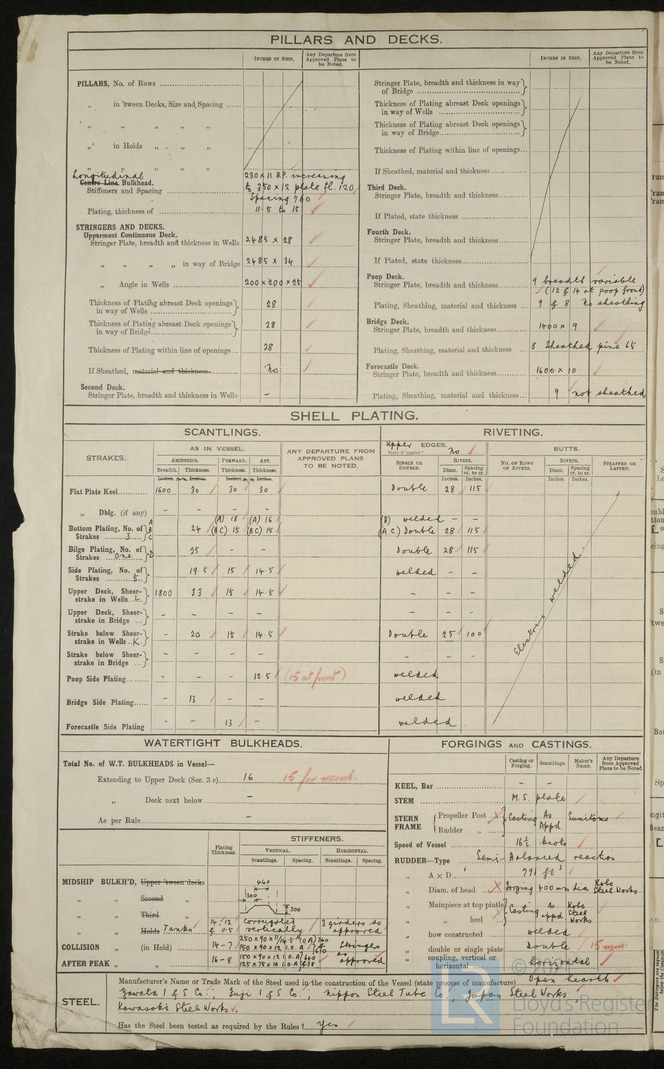 PILLARS AND DECKS.
Inches in Ship.
Any Departure from Approved Plans to be Noted.
Inches in Ship.
Any Departure from Approved Plans to be Noted.
PILLARS, No. of Rows
„ in 'tween Decks, Size and Spacing
„ „ „ „
„ in Holds „ „
„ „ „ „
Longitudinal
Centre Line Bulkhead.
Stiffeners and Spacing
230 x 11 B.P. increasing
to 350 x 12 plate fl. 120
Spacing 760
Plating, thickness of 11.5 to 15
STRINGERS AND DECKS.
Uppermost Continuous Deck.
Stringer Plate, breadth and thickness in Wells 2485 x 28
„ „ „ „ in way of Bridge 2485 x 34
„ Angle in Wells 200 x 200 x 25
Thickness of Plating abreast Deck openings in way of Wells 28
Thickness of Plating abreast Deck openings in way of Bridge 28
Thickness of Plating within line of openings 28
If Sheathed, material and thickness No
Second Deck.
Stringer Plate, breadth and thickness in Wells -
Stringer Plate, breadth and thickness in way of Bridge
Thickness of Plating abreast Deck openings in way of Wells
Thickness of Plating abreast Deck openings in way of Bridge
Thickness of Plating within line of openings
If Sheathed, material and thickness
Third Deck.
Stringer Plate, breadth and thickness
If Plated, state thickness
Fourth Deck.
Stringer Plate, breadth and thickness
If Plated, state thickness
Poop Deck.
Stringer Plate, breadth and thickness 9 breadth variable
(12 & 14 at poop front)
Plating, Sheathing, material and thickness 9 & 8 No sheathing
Bridge Deck.
Stringer Plate, breadth and thickness 1400 x 9
Plating, Sheathing, material and thickness 8 Sheathed pine 65
Forecastle Deck.
Stringer Plate, breadth and thickness 1600 x 10
Plating, Sheathing, material and thickness 9 not sheathed
SHELL PLATING.
SCANTLINGS.
RIVETING.
STRAKES.
AS IN VESSEL.
ANY DEPARTURE FROM APPROVED PLANS TO BE NOTED.
Upper EDGES. No
BUTTS.
Amidships. Forward. Aft.
Breadth. Thickness. Thickness. Thickness.
Single or Double.
Rivets.
Diam. Spacing cr. to cr.
No. of Rows of Rivets.
Rivets.
Diam. Spacing cr. to cr.
Strapped or Lapped.
Inches. Inches.
Inches. Inches.
Flat Plate Keel 1600 30 30 30 Double 28 115
„ Dblg. (if any) - - - -
Bottom Plating, No. of Strakes 3 A B C - 24 (A) 18 (BC) 15 (A) 16 (BC) 15 (B) welded - - (A.C) Double 28 115
Bilge Plating, No. of Strakes One D 25 - - Double 28 115
Side Plating, No. of Strakes 5 19.5 15 14.5 welded - -
Upper Deck, Sheer-strake in Wells L 1800 33 15 14.5 - - -
Upper Deck, Sheer-strake in Bridge - - - - - - -
Strake below Sheer-strake in Wells K - 20 15 14.5 Double 25 100
Strake below Sheer-strake in Bridge - - - - - - -
Poop Side Plating - - - 12.5 (15 at front) welded
Bridge Side Plating - 13 - - welded
Forecastle Side Plating - - 13 - welded
Electric welded
WATERTIGHT BULKHEADS.
Total No. of W.T. BULKHEADS in Vessel—
Extending to Upper Deck (Sec. 3 c) 16
„ Deck next below -
„ As per Rule -
Plating Thickness.
STIFFENERS.
VERTICAL. HORIZONTAL.
Scantlings. Spacing. Scantlings. Spacing.
440
300
300
MIDSHIP BULKH'D, Upper 'tween decks
„ „ Second „
„ „ Third „
„ „ Holds Tanks 14, 12 & 11.5 corrugated vertically 3 girders as approved
COLLISION „ (in Hold) 14-7
AFTER PEAK „ „ 16-8
Stringers as approved
FORGINGS AND CASTINGS.
Casting or Forging. Scantlings. Maker's Name. Any Departure from Approved Plans to be Noted.
KEEL, Bar - -
STEM M.S. plate
STERN FRAME Propeller Post Rudder „ Casting As Appd Sumitomo
Speed of Vessel 16½ knots
RUDDER—Type Semi-balanced reaction
„ A × D
„ Diam. of head forging 400 mm dia Kobe Steel Works
„ Mainpiece at top pintle
„ „ heel Casting as appd Kobe Steel Works
„ how constructed welded
„ double or single plate Double
„ coupling, vertical or horizontal horizontal
STEEL.
Manufacturer's Name or Trade Mark of the Steel used in the construction of the Vessel (state process of manufacture) Open hearth
Yawata I & S Co., Fuji I & S Co., Nippon Steel Tube Co., Japan Steel Works
Kawasaki Steel Works.
Has the Steel been tested as required by the Rules? Yes
© 2021
Lloyd's Register
Foundation
LR